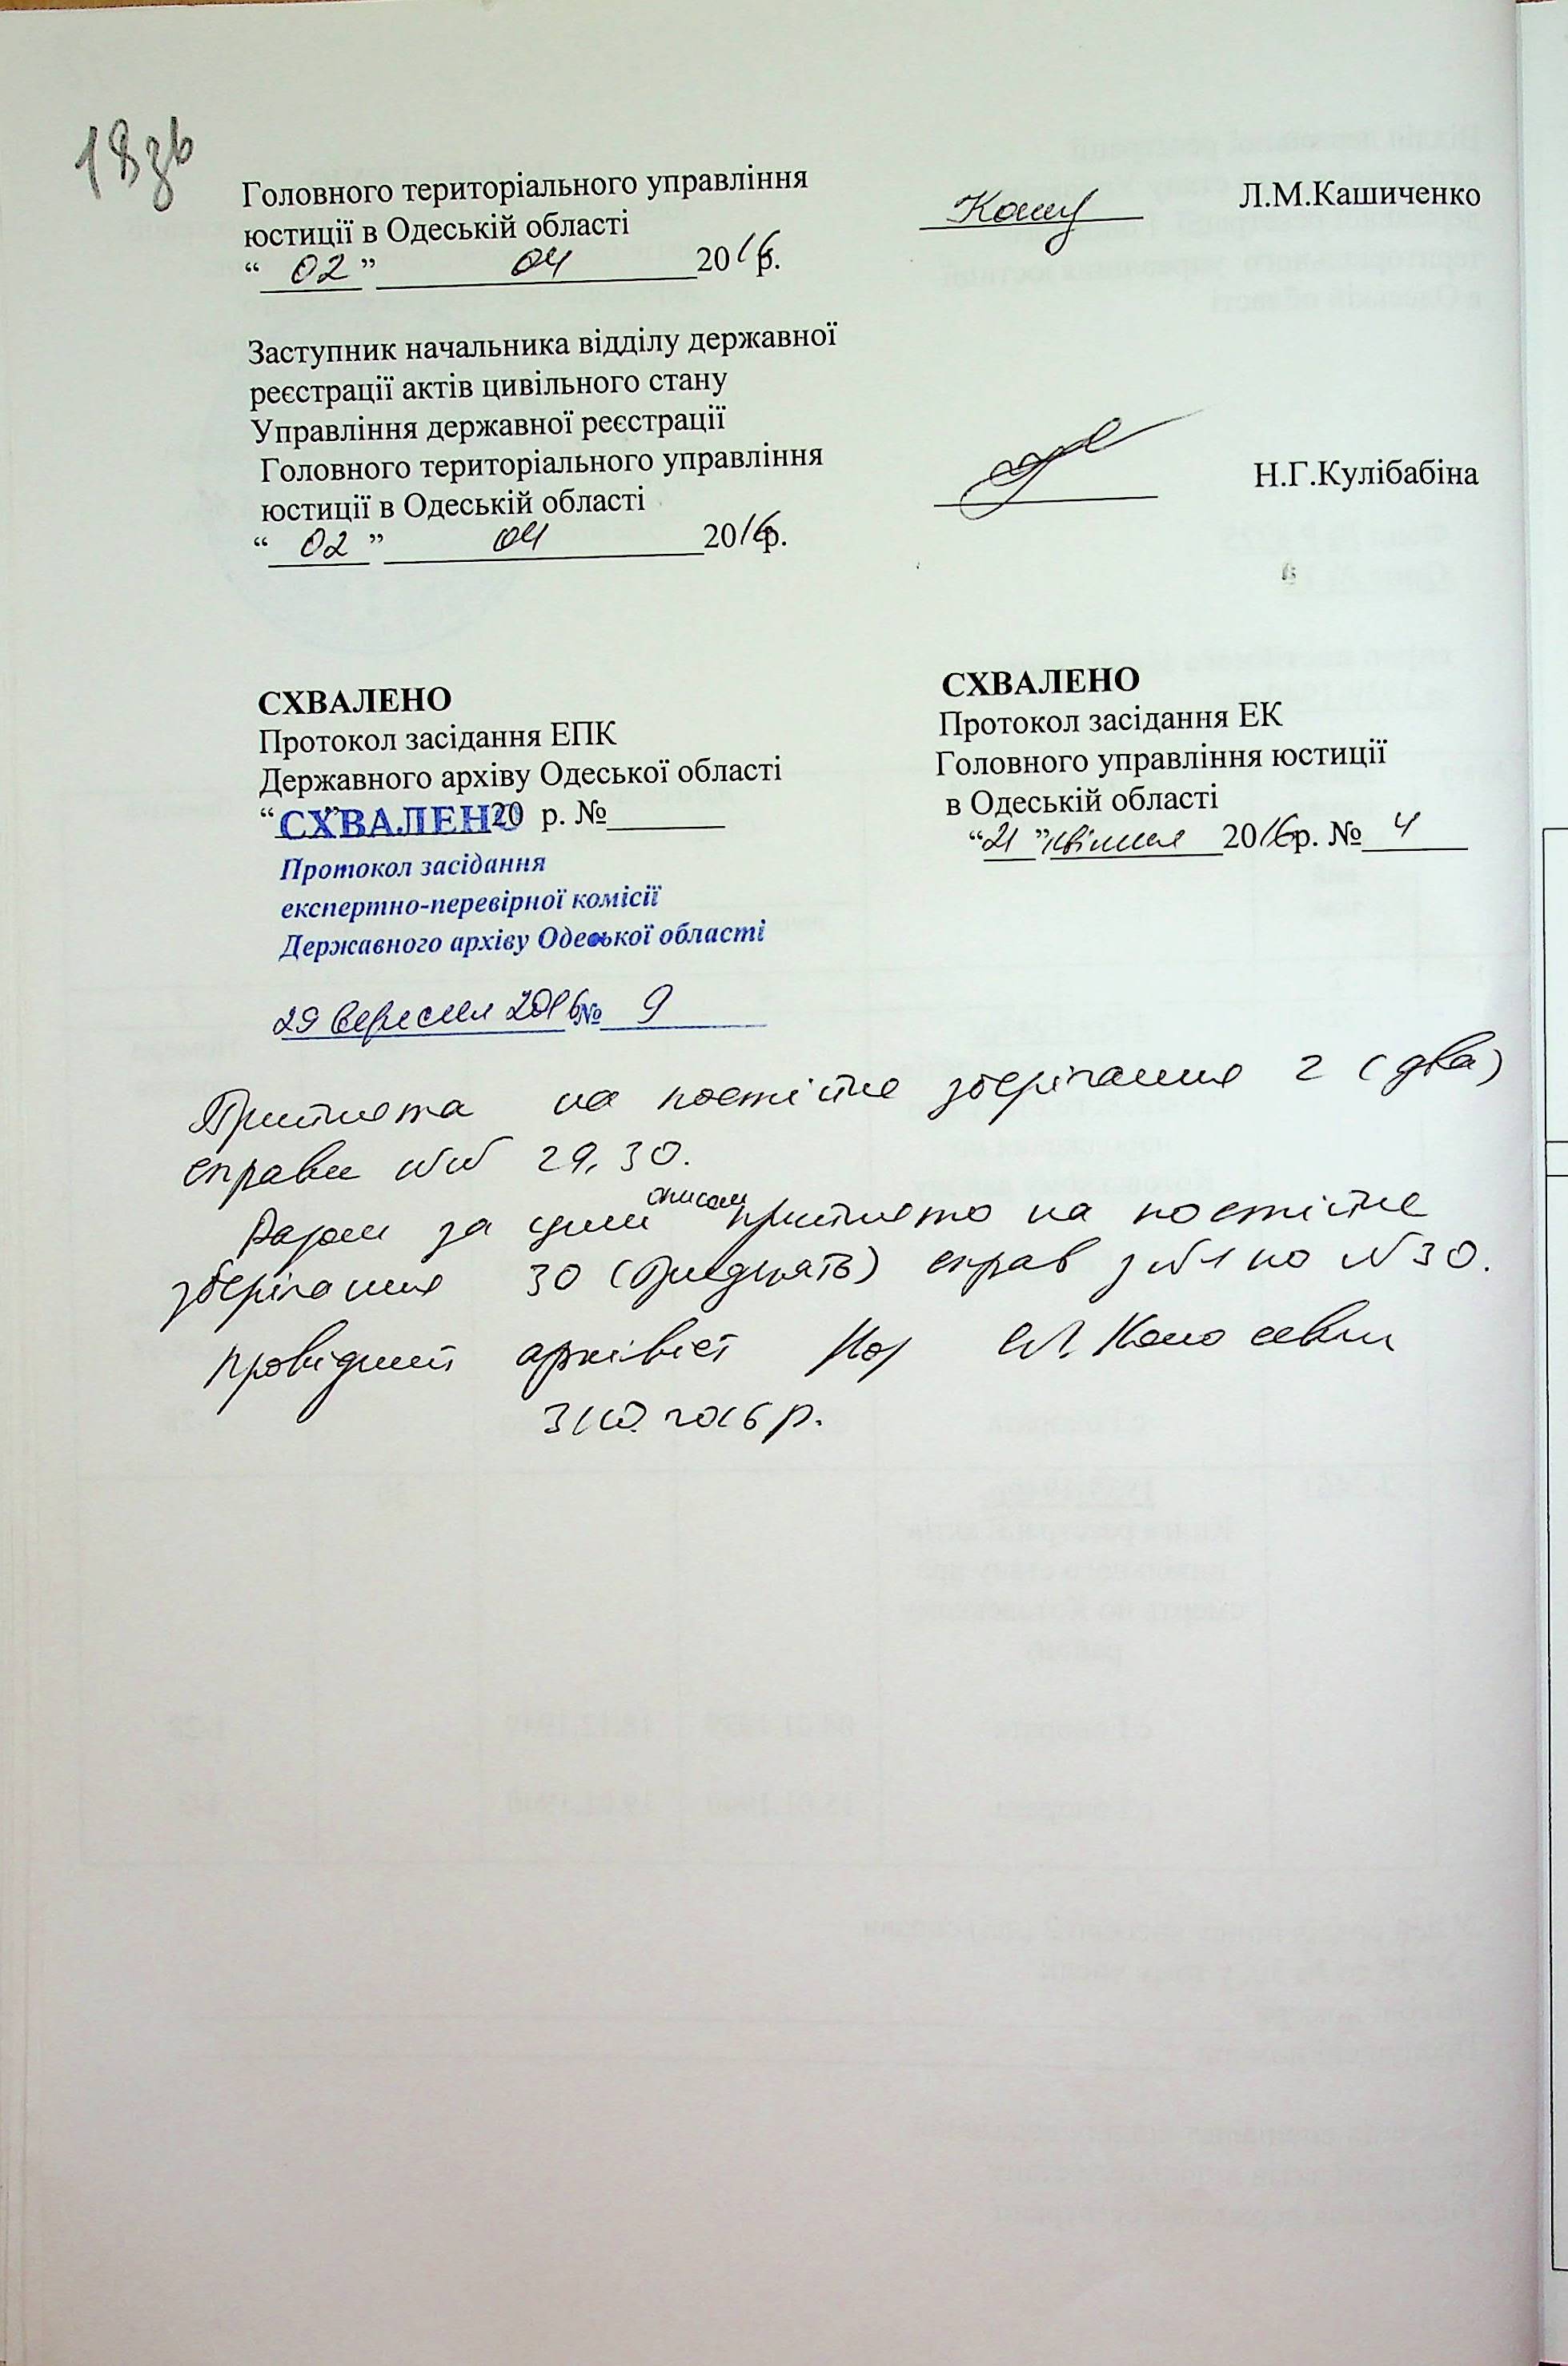 18зв
Головного територіального управління
юстиції в Одеській області
Л.М.Кашиченко
“ 02 ” 04 2016р.
Заступник начальника відділу державної
реєстрації актів цивільного стану
Управління державної реєстрації
Головного територіального управління
юстиції в Одеській області
Н.Г.Кулібабіна
“ 02 ” 04 2016р.
СХВАЛЕНО
Протокол засідання ЕПК
Державного архіву Одеської області
“ ” 20 р. №
СХВАЛЕНО
Протокол засідання
експертно-перевірної комісії
Державного архіву Одеської області
29 вересня 2016 № 9
СХВАЛЕНО
Протокол засідання ЕК
Головного управління юстиції
в Одеській області
“21” квітня 2016р. № 4
Прийнята на постійне зберігання 2 (два)
справи №№ 29, 30.
Разом за цим описом прийнято на постійне
зберігання 30 (тридцять) справ з №1 по №30.
Провідний архівіст
31.10.2016 р.